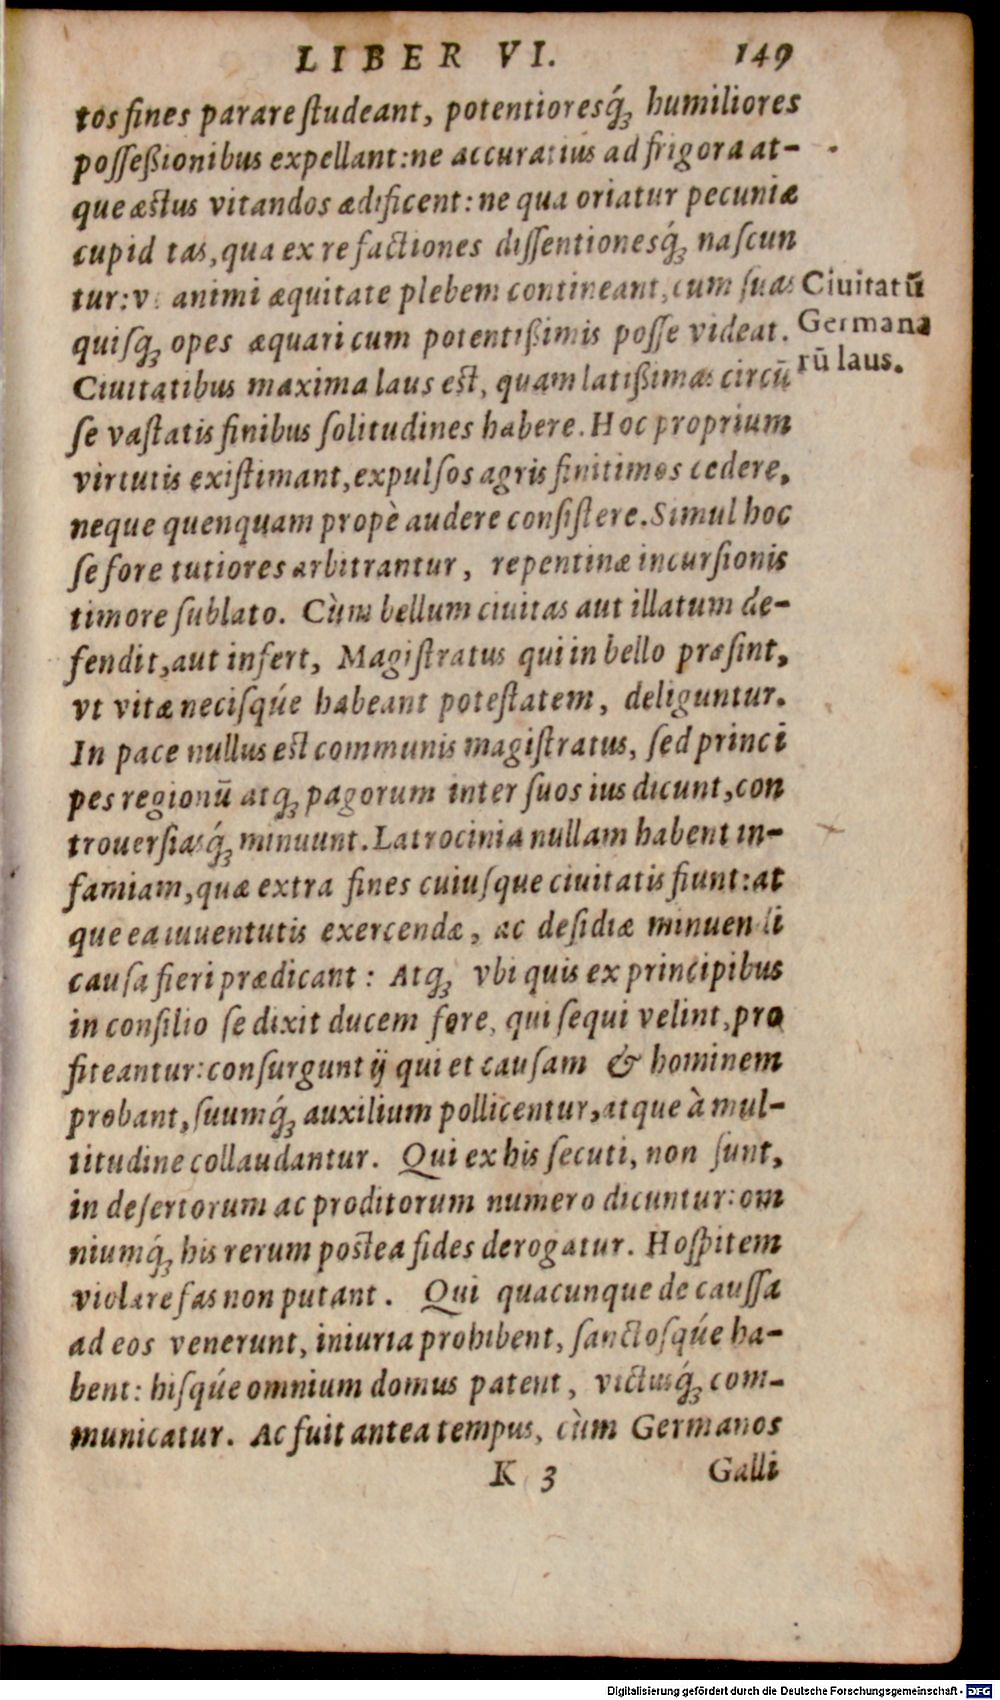 LIBER VI. 149
tos fines parare ſtudeant, potentioresq́ꝫ humiliores
poſſeßionibus expellant: ne accuratius ad frigora at-
que æstus vitandos ædificent: ne qua oriatur pecuniæ
cupid tas, qua ex re factiones diſſentionesq́ꝫ naſcun
tur: vt animi æquitate plebem contineant, cum ſuas
quiſqꝫ opes æquari cum potentißimis poſſe videat.
Ciuitatū
Germana
rū laus.
Ciuitatibus maxima laus est, quam latißimas circū
ſe vaſtatis finibus ſolitudines habere. Hoc proprium
virtutis exiſtimant, expulſos agris finitimos cedere,
neque quenquam propè audere conſiſtere. Simul hoc
ſe fore tutiores arbitrantur, repentinæ incurſionis
timore ſublato. Cùm bellum ciuitas aut illatum de-
fendit, aut infert, Magiſtratus qui in bello præſint,
vt vitæ neciſqúe habeant poteſtatem, deliguntur.
In pace nullus est communis magiſtratus, ſed princi
pes regionū atqꝫ pagorum inter ſuos ius dicunt, con
trouerſiasq́ꝫ minuunt. Latrocinia nullam habent in-
famiam, quæ extra fines cuiuſque ciuitatis fiunt: at
que ea iuuentutis exercendæ, ac deſidiæ minuendi
cauſa fieri prædicant: Atqꝫ vbi quis ex principibus
in conſilio ſe dixit ducem fore, qui ſequi velint, pro
fiteantur: conſurgunt ij qui et cauſam & hominem
probant, ſuumq́ꝫ auxilium pollicentur, atque à mul-
titudine collaudantur. Qui ex his ſecuti, non ſunt,
in deſertorum ac proditorum numero dicuntur: om
niumq́ꝫ his rerum postea fides derogatur. Hoſpitem
violare fas non putant. Qui quacunque de cauſſa
ad eos venerunt, iniuria prohibent, ſanctoſqúe ha-
bent: hiſqúe omnium domus patent, victusq́ꝫ com-
municatur. Ac fuit antea tempus, cùm Germanos
K 3 Galli
Digitalisierung gefördert durch die Deutsche Forschungsgemeinschaft - DFG